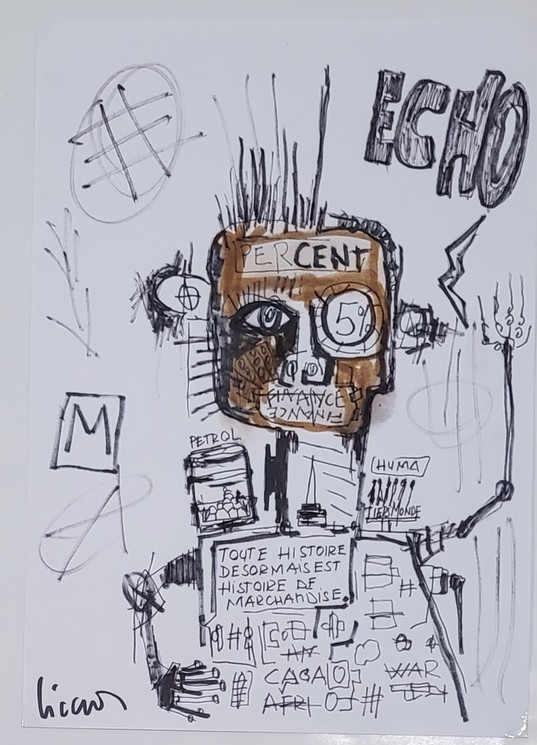 ECHO
PERCENT
5%
FINANCE
FINANCE
M
PETROL
HUMA
TIERS MONDE
TOUTE HISTOIRE
DESORMAIS EST
HISTOIRE DE
MARCHANDISE.
CACAO
WAR